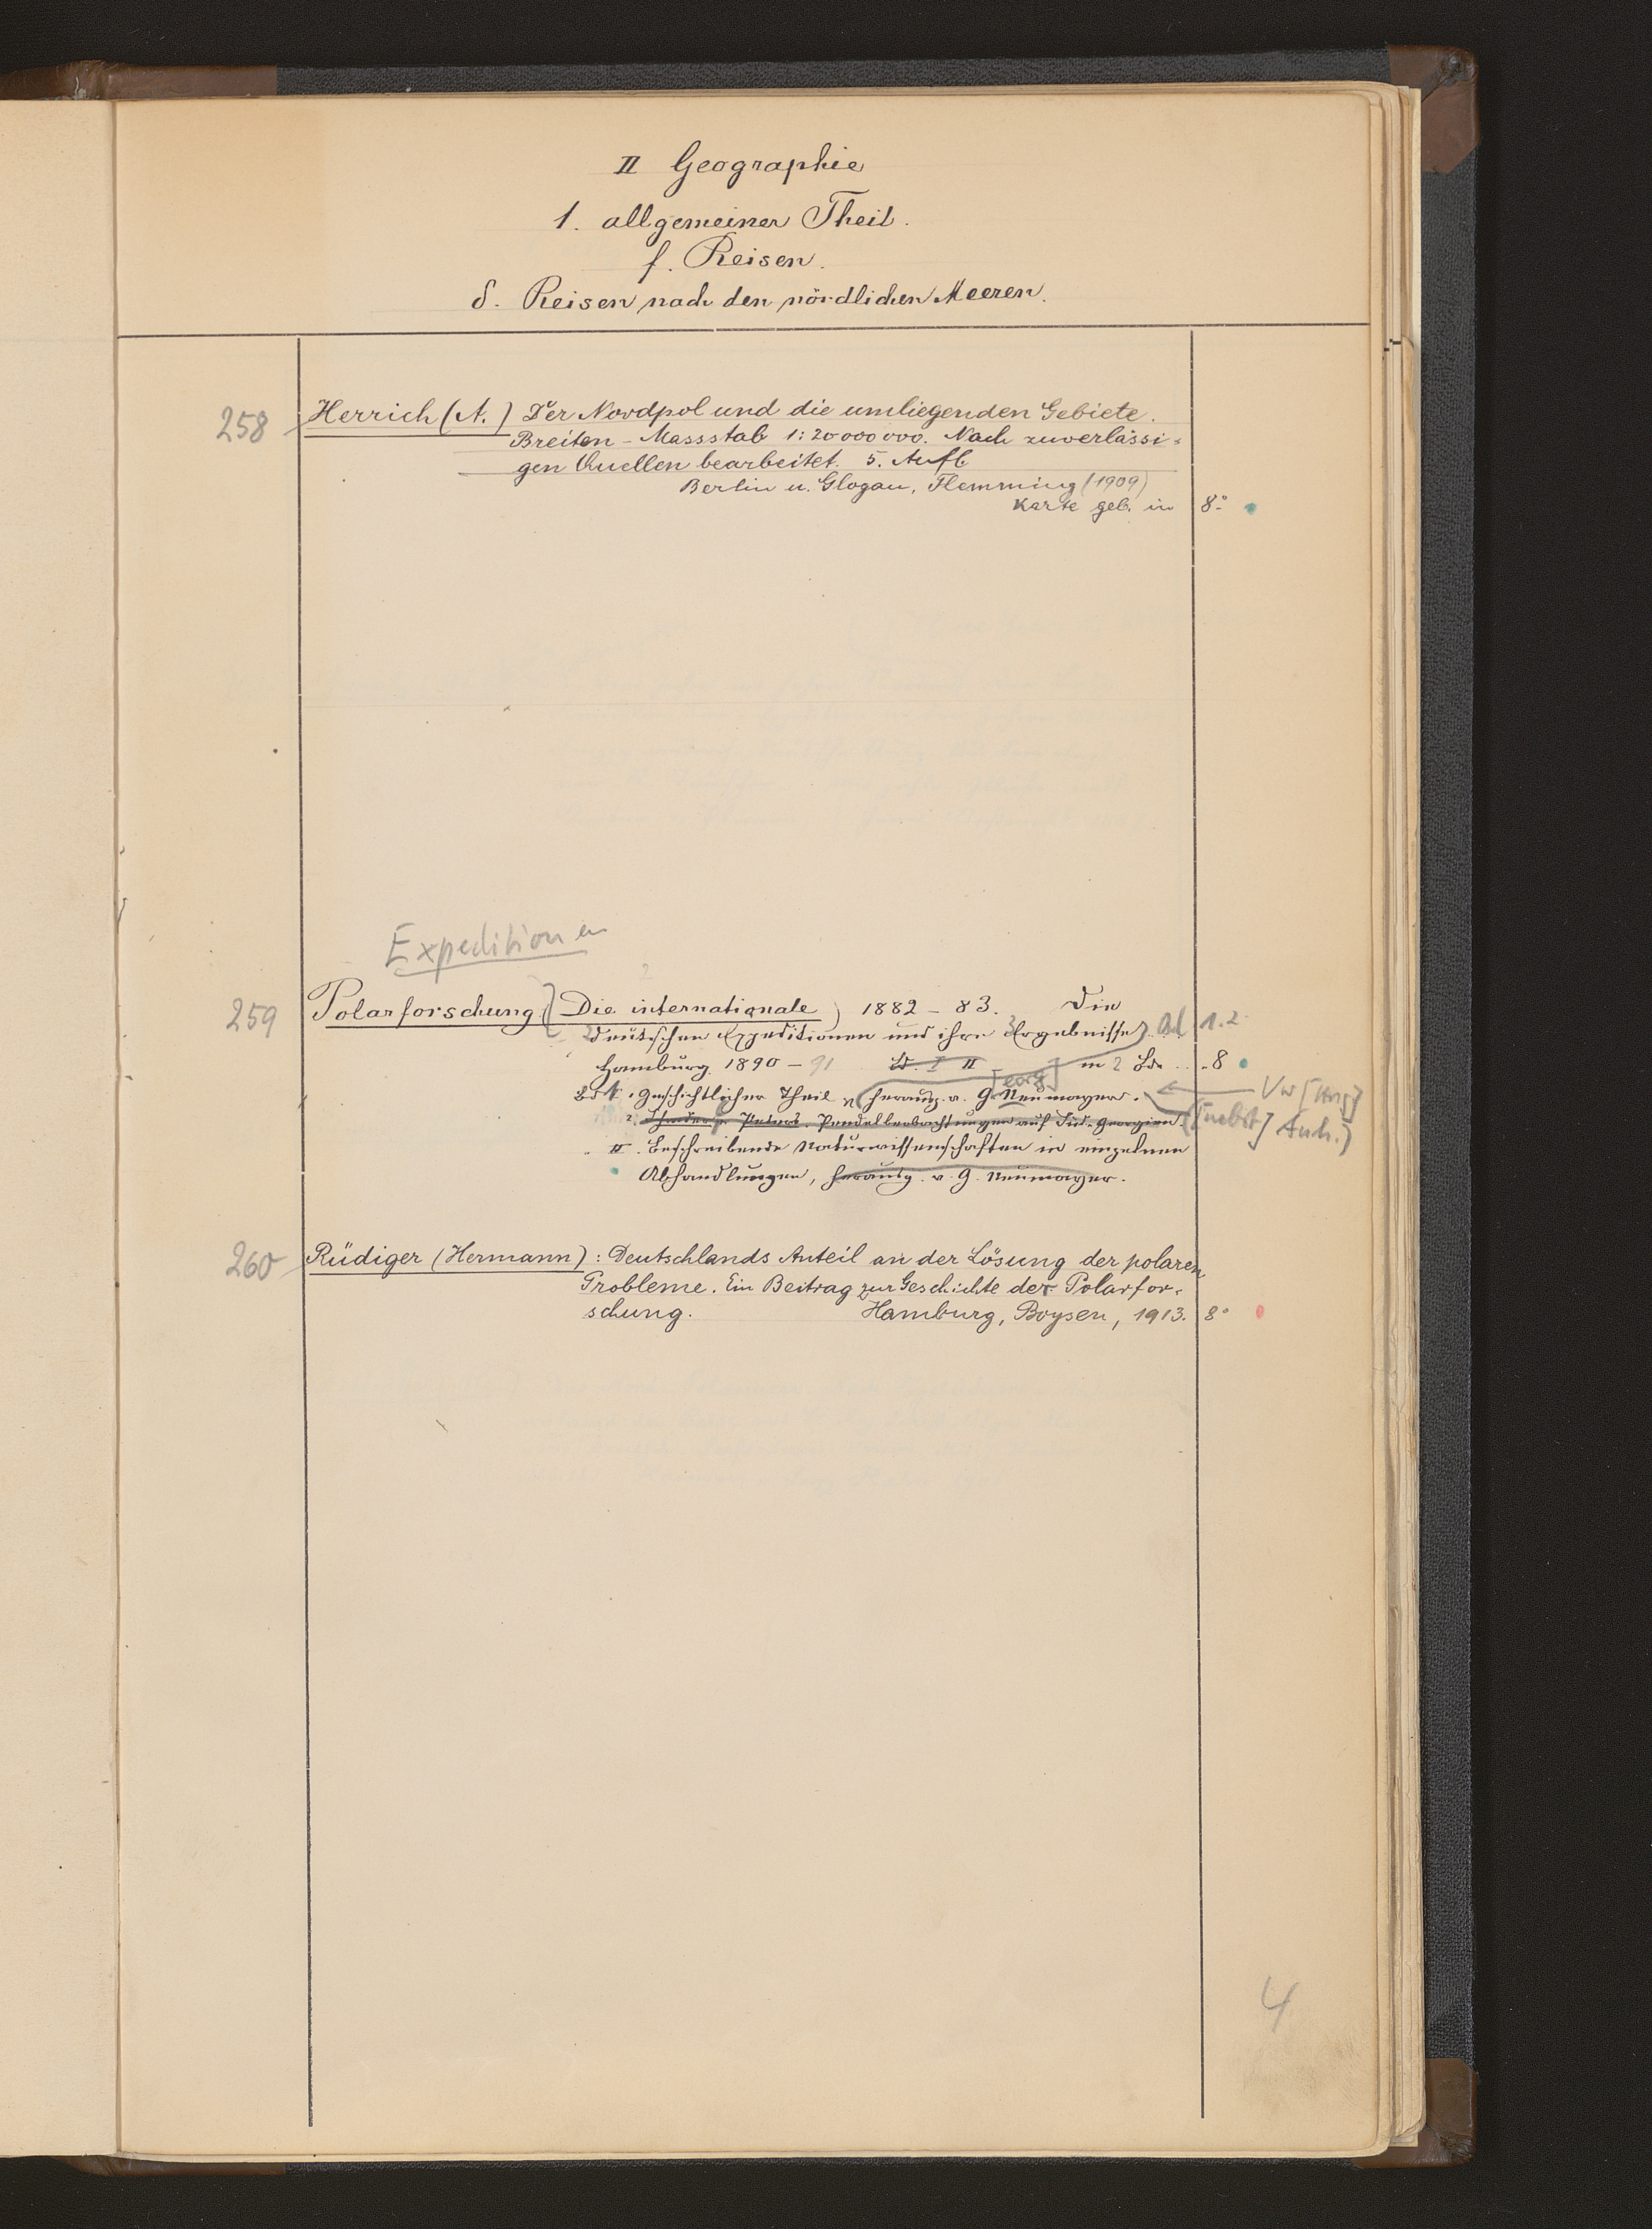 II Geographie
1. allgemeiner Theil.
f. Reisen.
δ. Reisen nach den nördlichen Meeren.
258 Herrich (A.) Der Nordpol und die umliegenden Gebiete.
Breiten - Massstab 1:20000000. Nach zuverlässi-
gen Quellen bearbeitet. 5. Aufl.
Berlin u. Glogau, Flemming (1909)
Karte geb. in 8°
Expeditionen
259 Polarforschung (Die internationale) 1882 - 83. Die
deutschen Expeditionen und ihre Ergebnisse. Bd 1.2.
Hamburg 1890 - 91 Bd. I II in 2 Bde. 8
Bd 1. Geschichtlicher Theil herausg. v. G[eorg] Neumayer.
2. Peters. Pendelbeobachtungen auf Süd-Georgien. [nebst] Anh.)
II. Beschreibende Naturwissenschaften in einzelnen
Abhandlungen, herausg. v. G. Neumayer.
260 Rüdiger (Hermann): Deutschlands Anteil an der Lösung der polaren
Probleme. Ein Beitrag zur Geschichte der Polarfor-
schung. Hamburg, Boysen, 1913. 8°
4